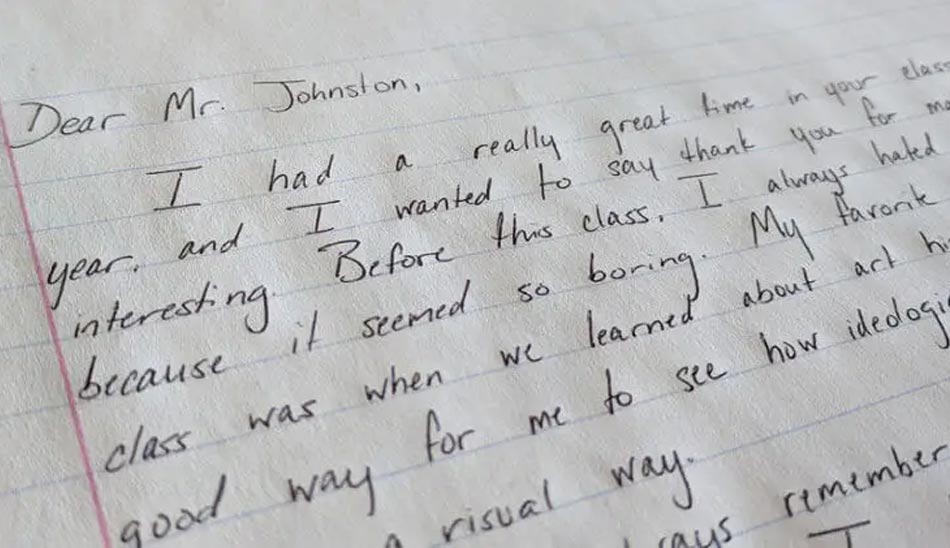 Dear Mr. Johnston,
I had a really great time in your class
year, and I wanted to say thank you for
interesting. Before this class, I always hated
because it seemed so boring. My favorite
class was when we learned about art
good way for me to see how
a visual way.
remember
I